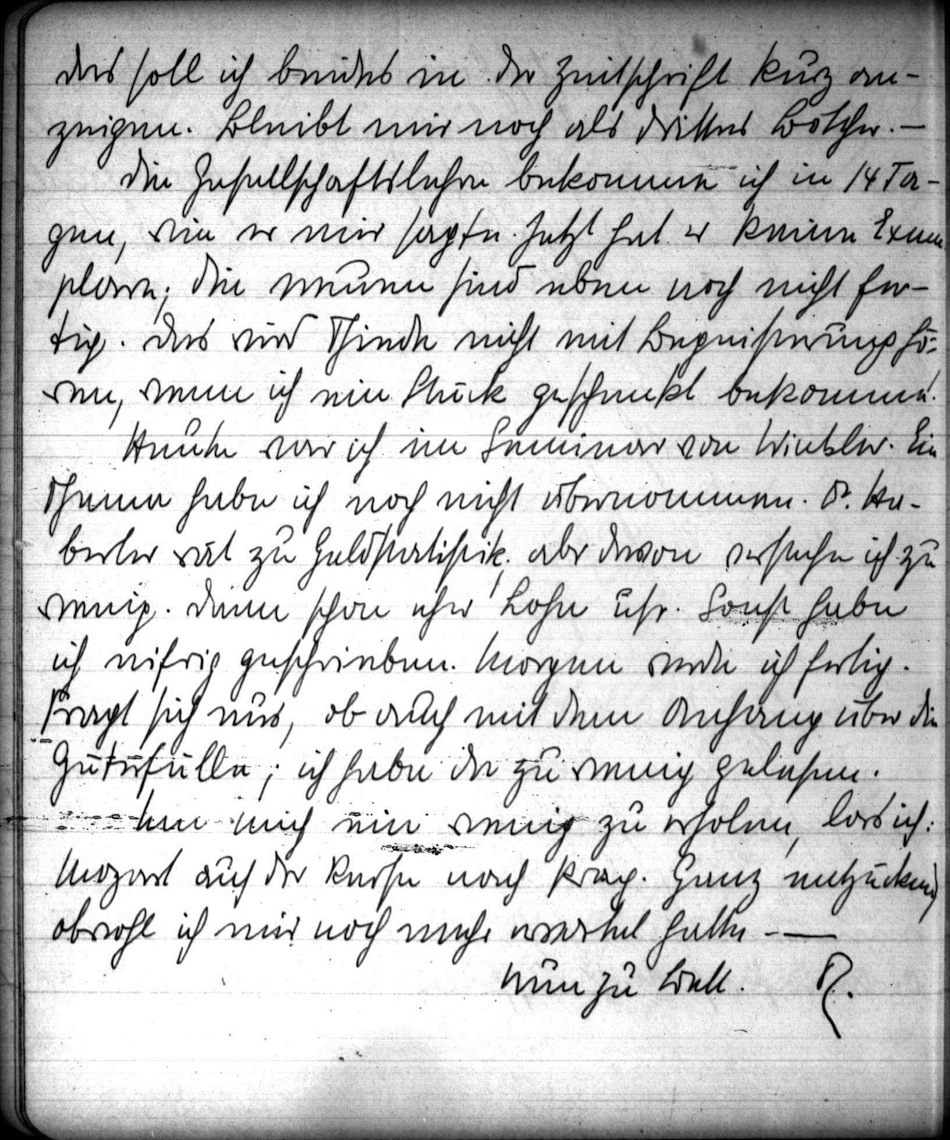 das soll ich beides in der Zeitschrift kurz an-
zeigen. Bleibt mir noch als drittes Böhler. —
Die Gesellschaftslehre bekomme ich in 14 Ta-
gen, wie er mir sagte. Jetzt hat er keine Exem
plare; die neuen sind eben noch nicht fer-
tig. Das wird Thinde nicht mit Begeisterung hö-
ren, wenn ich ein Stück geschenkt bekomme!
Heute war ich im Seminar von Winkler. Ein
Thema habe ich noch nicht übernommen. Dr. Ha-
berler rät zu Geldstatistik, aber davon verstehe ich zu
wenig. Dann schon eher Lohn usw. Sonst habe
ich eifrig geschrieben. Morgen werde ich fertig.
Fragt sich nur, ob auch mit dem Anhang über die
Güterfülle; ich habe da zu wenig gelesen.
Um mich ein wenig zu erholen, las ich:
Mozart auf der Reise nach Prag. Ganz entzückend,
obwohl ich mir noch mehr erwartet hatte. —
Nun zu Bett. R.